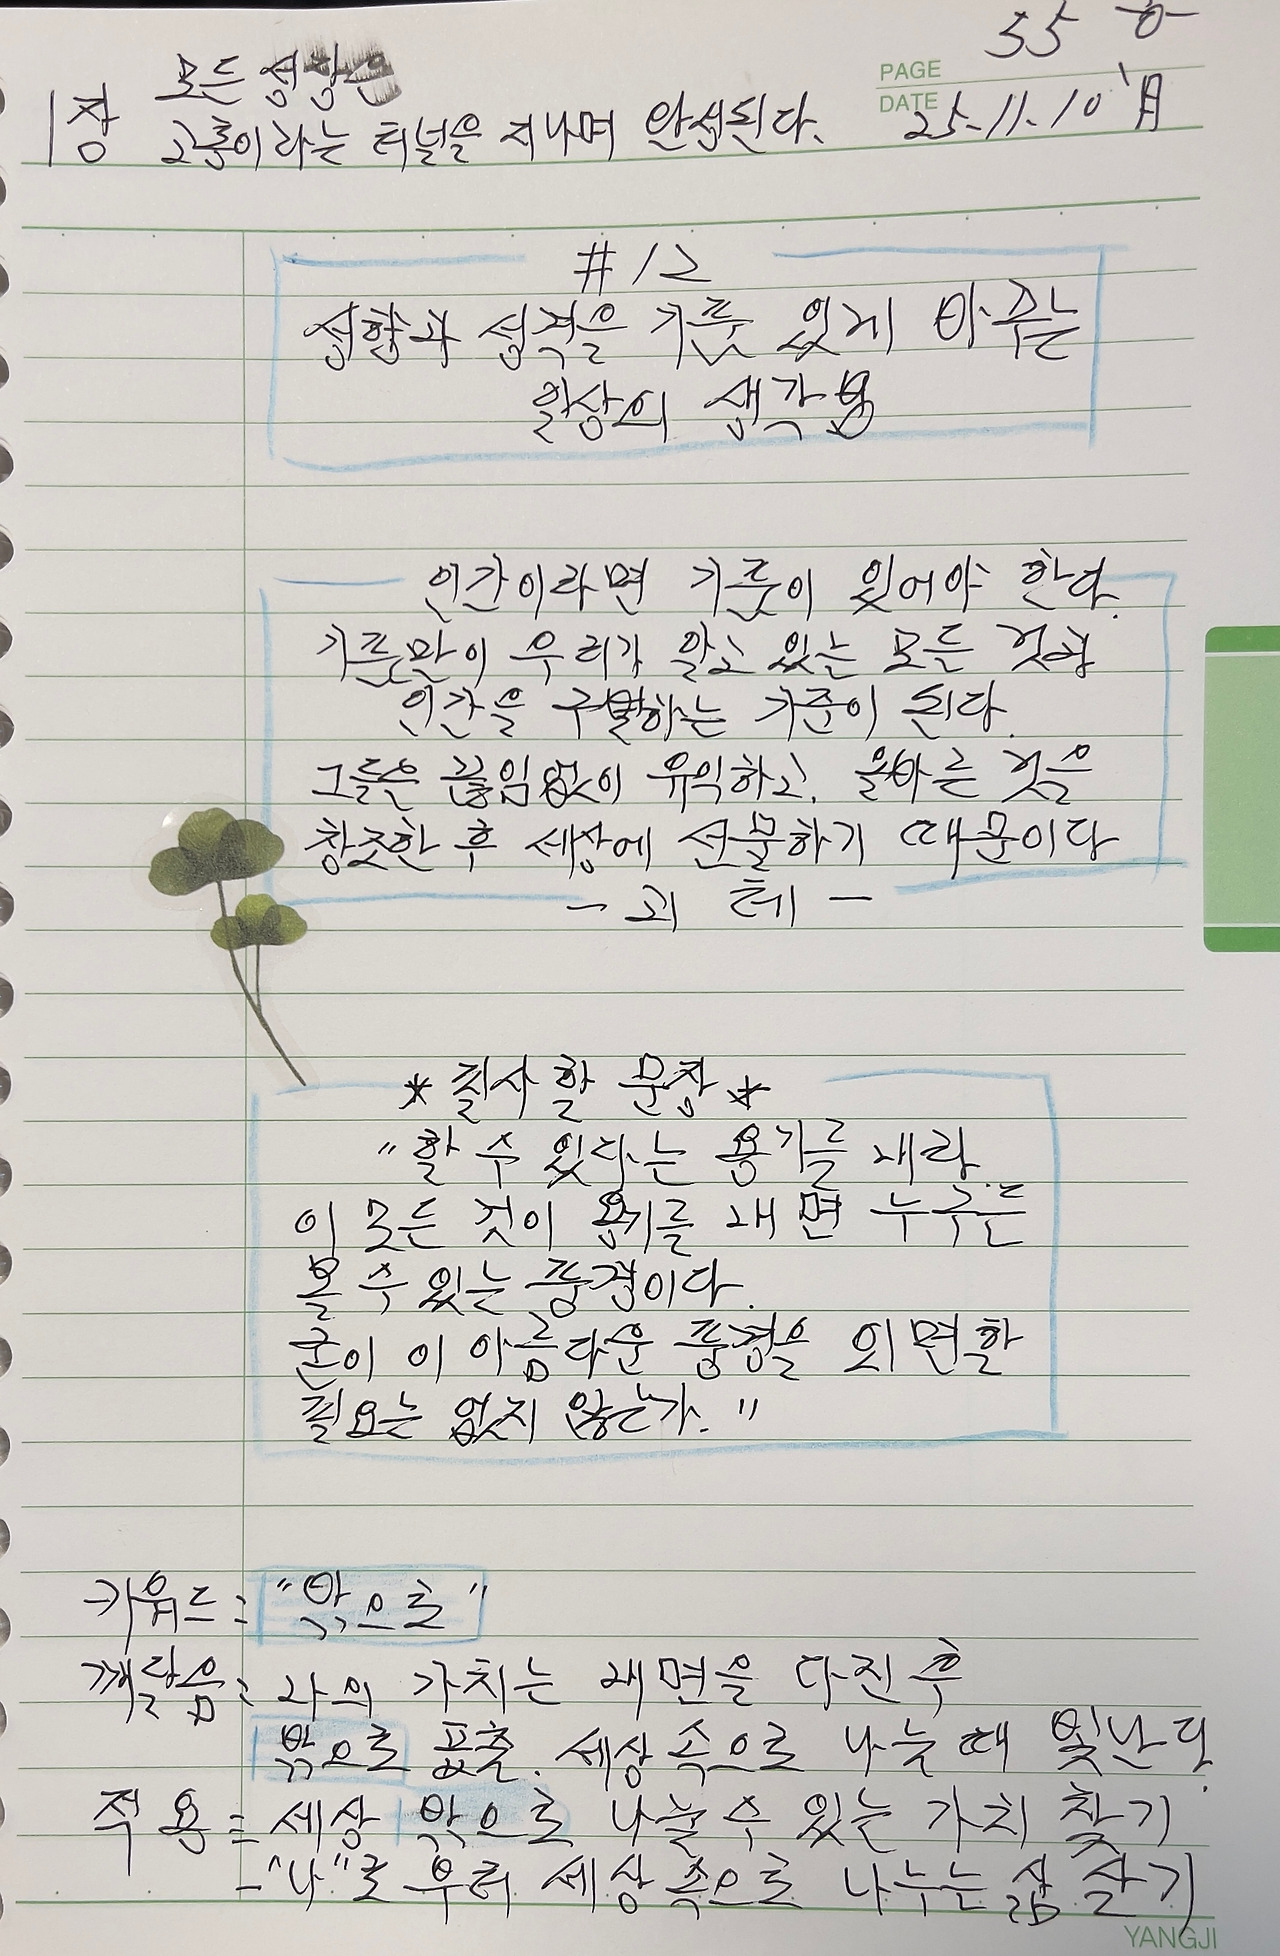 55 号
PAGE
DATE 25.11.10 月
1장 모든 성장은
고통이라는 터널을 지나며 완성된다.
#12
성향과 성격을 기품 있게 바꾸는
일상의 생각법
인간이라면 기품이 있어야 한다.
기품만이 우리가 알고 있는 모든 것과
인간을 구별하는 기준이 된다.
그들은 끊임없이 유익하고, 올바른 것을
창조한 후 세상에 선물하기 때문이다
- 괴 테 -
* 필사할 문장 *
"할 수 있다는 용기를 내라.
이 모든 것이 용기를 내면 누구든
볼 수 있는 풍경이다.
굳이 이 아름다운 풍경을 외면할
필요는 없지 않은가."
키워드 : "밖으로"
깨달음 : 나의 가치는 내면을 다진 후
밖으로 표출. 세상 속으로 나눌 때 빛난다.
적용 = 세상 밖으로 나눌 수 있는 가치 찾기
- "나"로 부터 세상 속으로 나누는 삶 살기
YANGJI